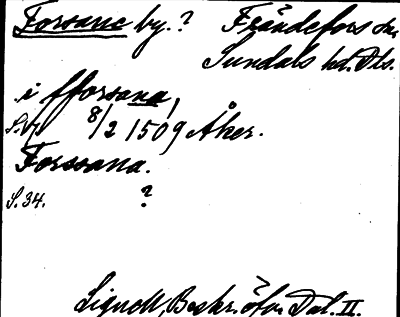 Forsane by.? Frändefors sn,
Sundals hd. Dls.
i fforsana,
8/2 1509 Åker.
Forssana.
S. 34. ?
Lignell, Beskr. öfver Dal. II.